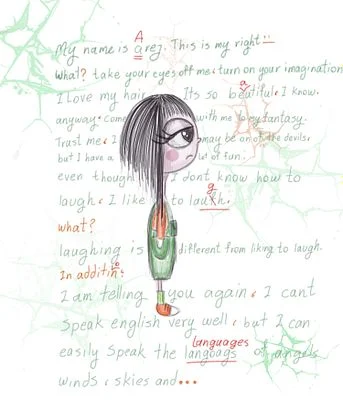 A
My name is arez. This is my right!!
What? take your eyes off me. turn on your imagination
I Love my hair Its so beutiful. I know.
a
anyway. Come with me to my fantasy.
Trust me. I may be on of the devils.
but I have a of fun.
even though I dont know how to
g
laugh. I like to laukh.
what?
laughing is different from liking to laugh.
In additin:
o
I am telling you again. I cant
Speak english very well, but I can
languages
easily Speak the langoags of angels
winds, skies and...